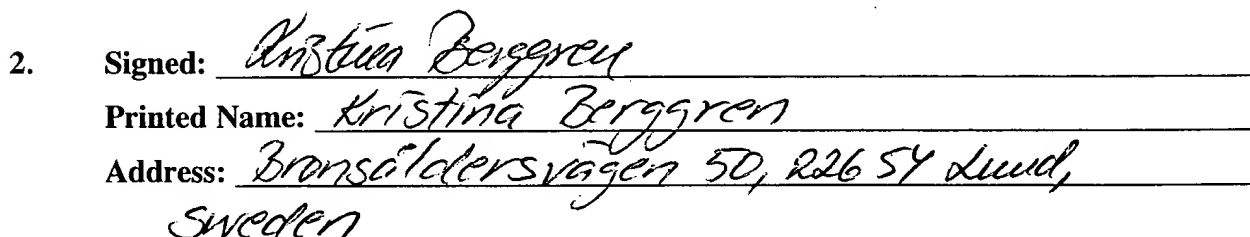 2. Signed: Kristina Berggren
Printed Name: Kristina Berggren
Address: Bronsåldersvägen 50, 226 54 Lund,
Sweden